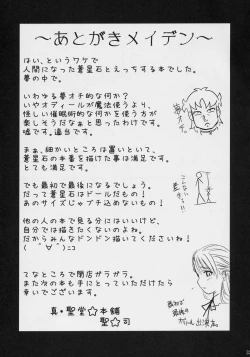 ～あとがきメイデン～
はい、というワケで
人間になった蒼星石とえっちする本でした。
夢の中で。
いわゆる夢オチ的な何か?
いやオディールが魔法使うより、
怪しい催眠術的な何かを使う方が
楽しそうだなぁと思ったわけです。
嘘です。適当です。
まぁ、細かいところは置いといて、
蒼星石の本番を描けた事は満足です。
とても満足です。
でも最初で最後になるでしょう。
だって蒼星石はドールだもん!
あのサイズじゃブチ込めないもん!
他の人の本で見る分にはいいけど、
自分では描きたくないのよね。
だからみんなドンドン描いてくださいね!
(゜∀゜)ニコ
てなところで閉店ガラガラ。
また次の本も手にとっていただけたら
幸いでございます。
真・聖堂☆本舗
聖☆司
夢オチ